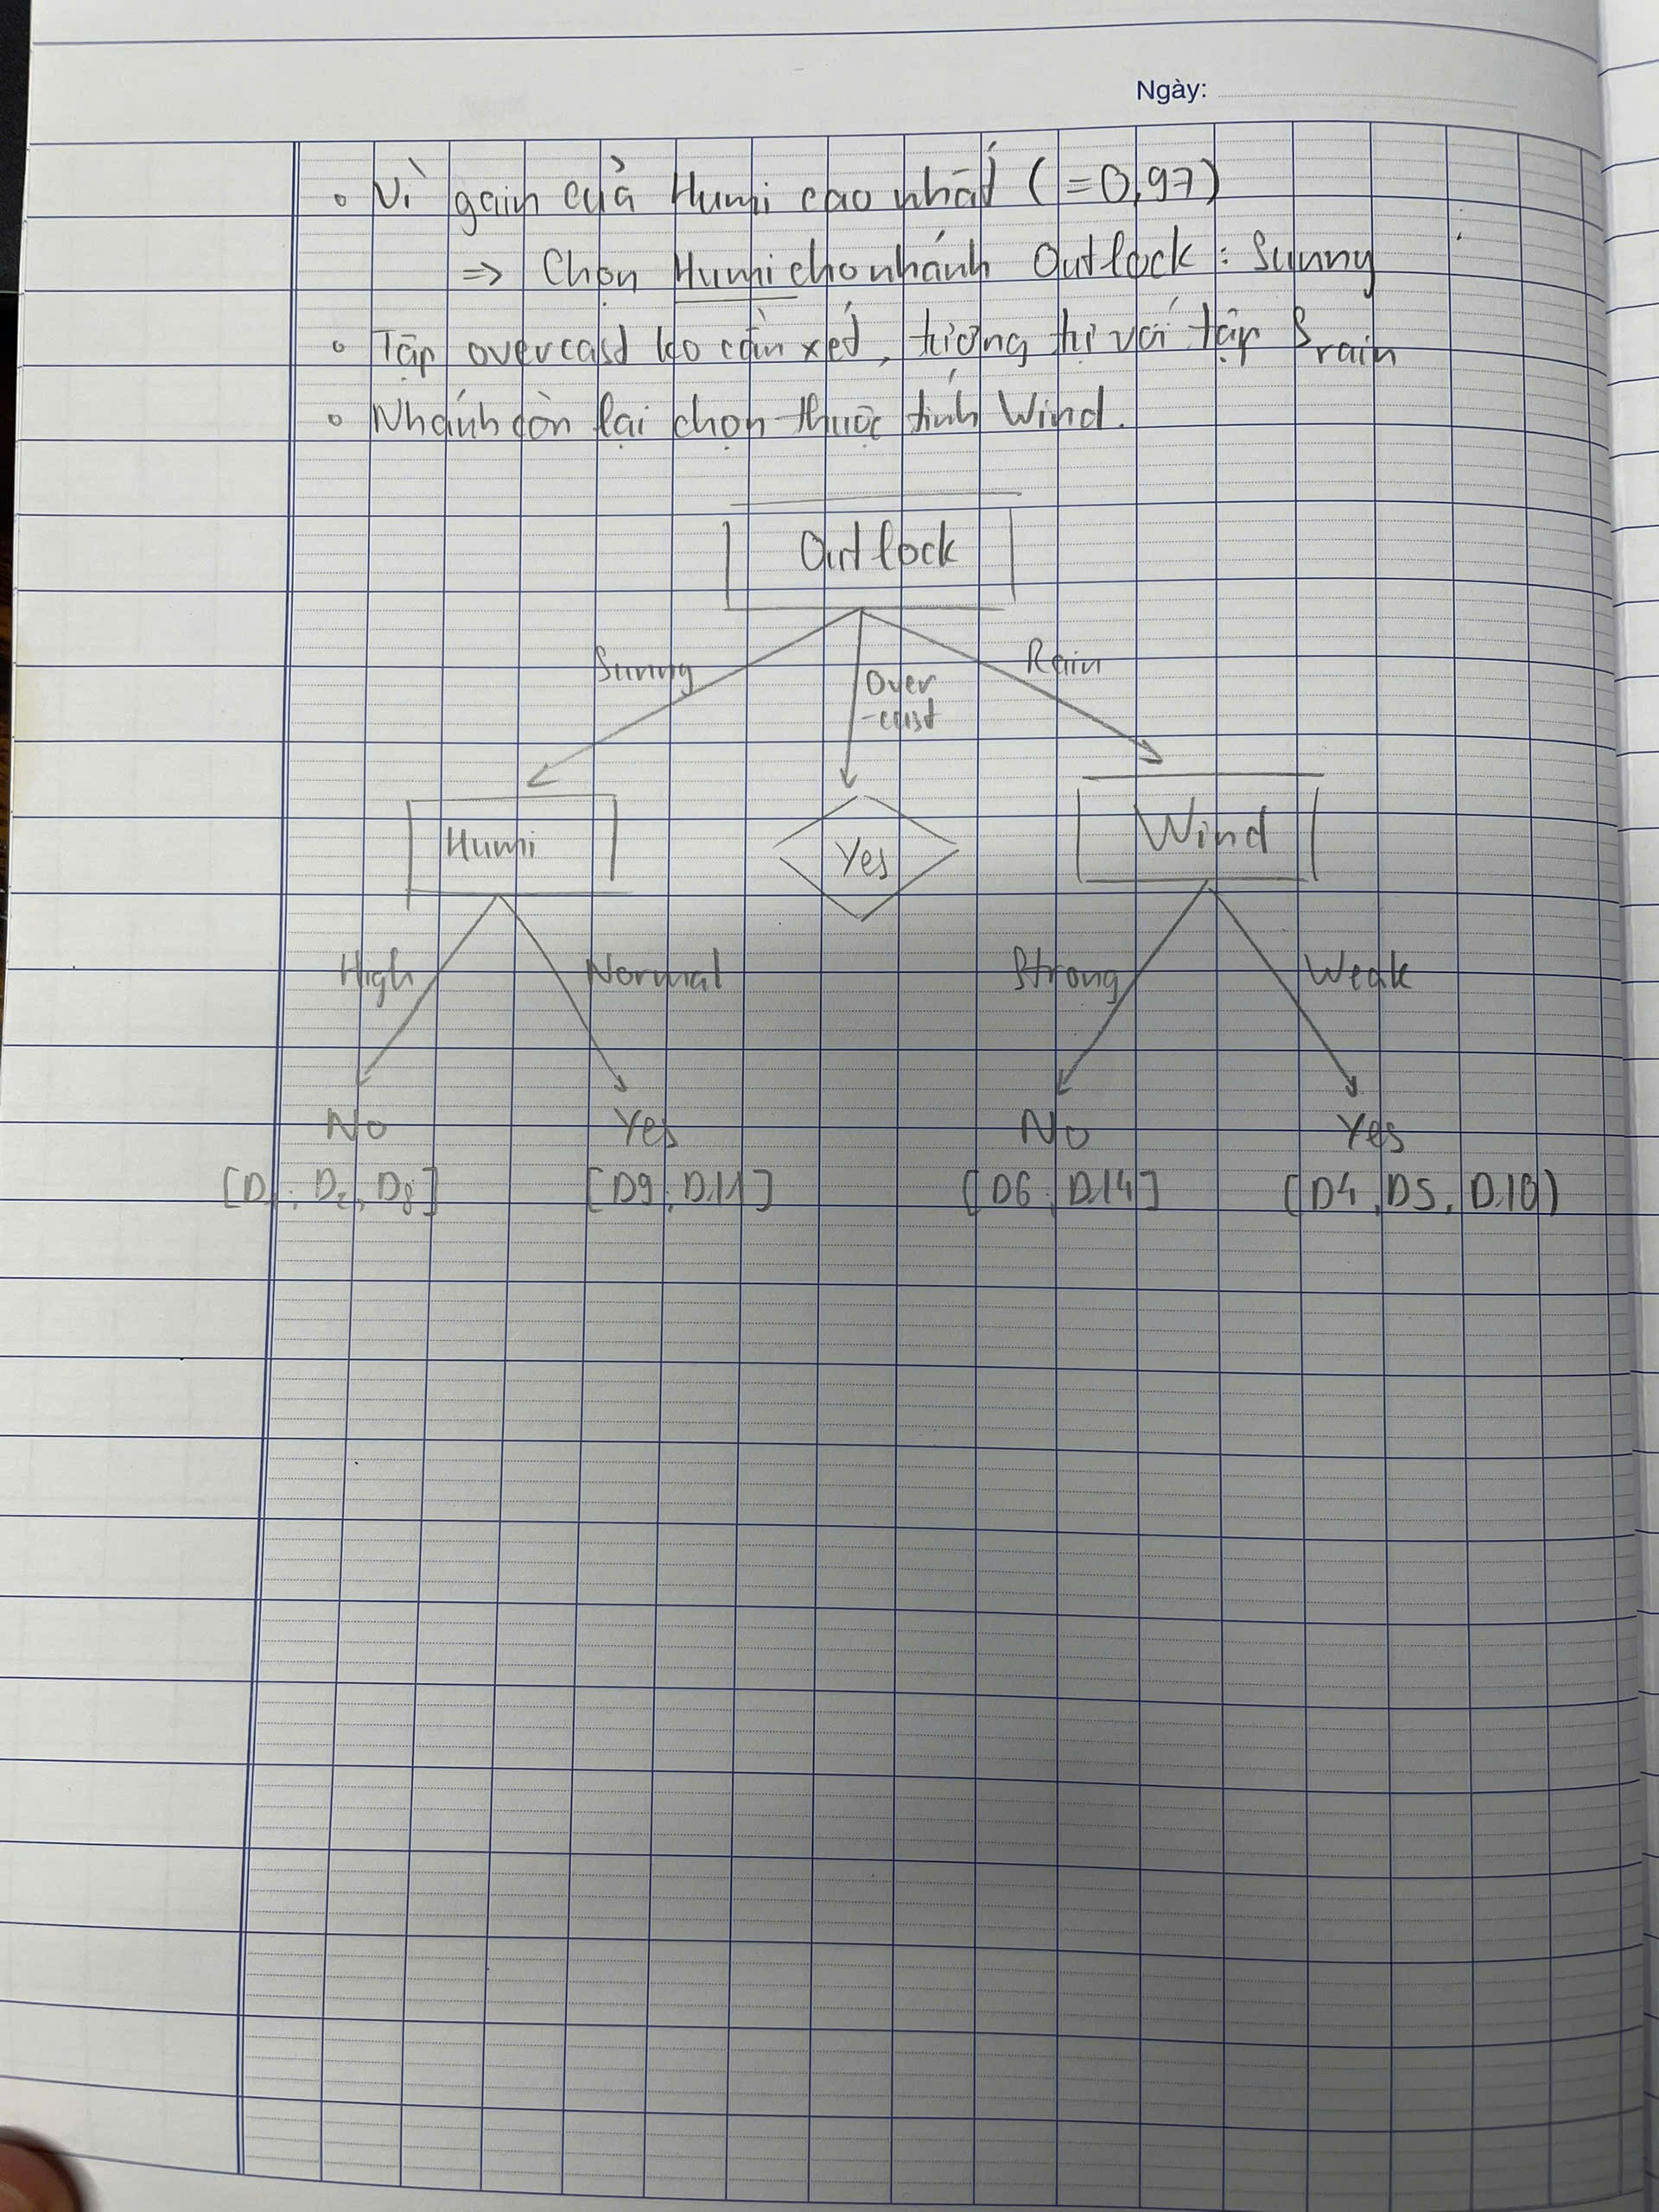 Ngày:
Vì gain của Humi cao nhất (=0,97)
=> Chọn Humi cho nhánh Outlock : Sunny
Tập overcast ko cần xét, tương tự với tập Srain
Nhánh còn lại chọn thuộc tính Wind.
Outlock
Sunny
Over
-cast
Rain
Humi
Yes
Wind
High
Normal
Strong
Weak
No
Yes
No
Yes
[D1, D2, D8]
[D9, D11]
[D6, D14]
(D4, D5, D10)